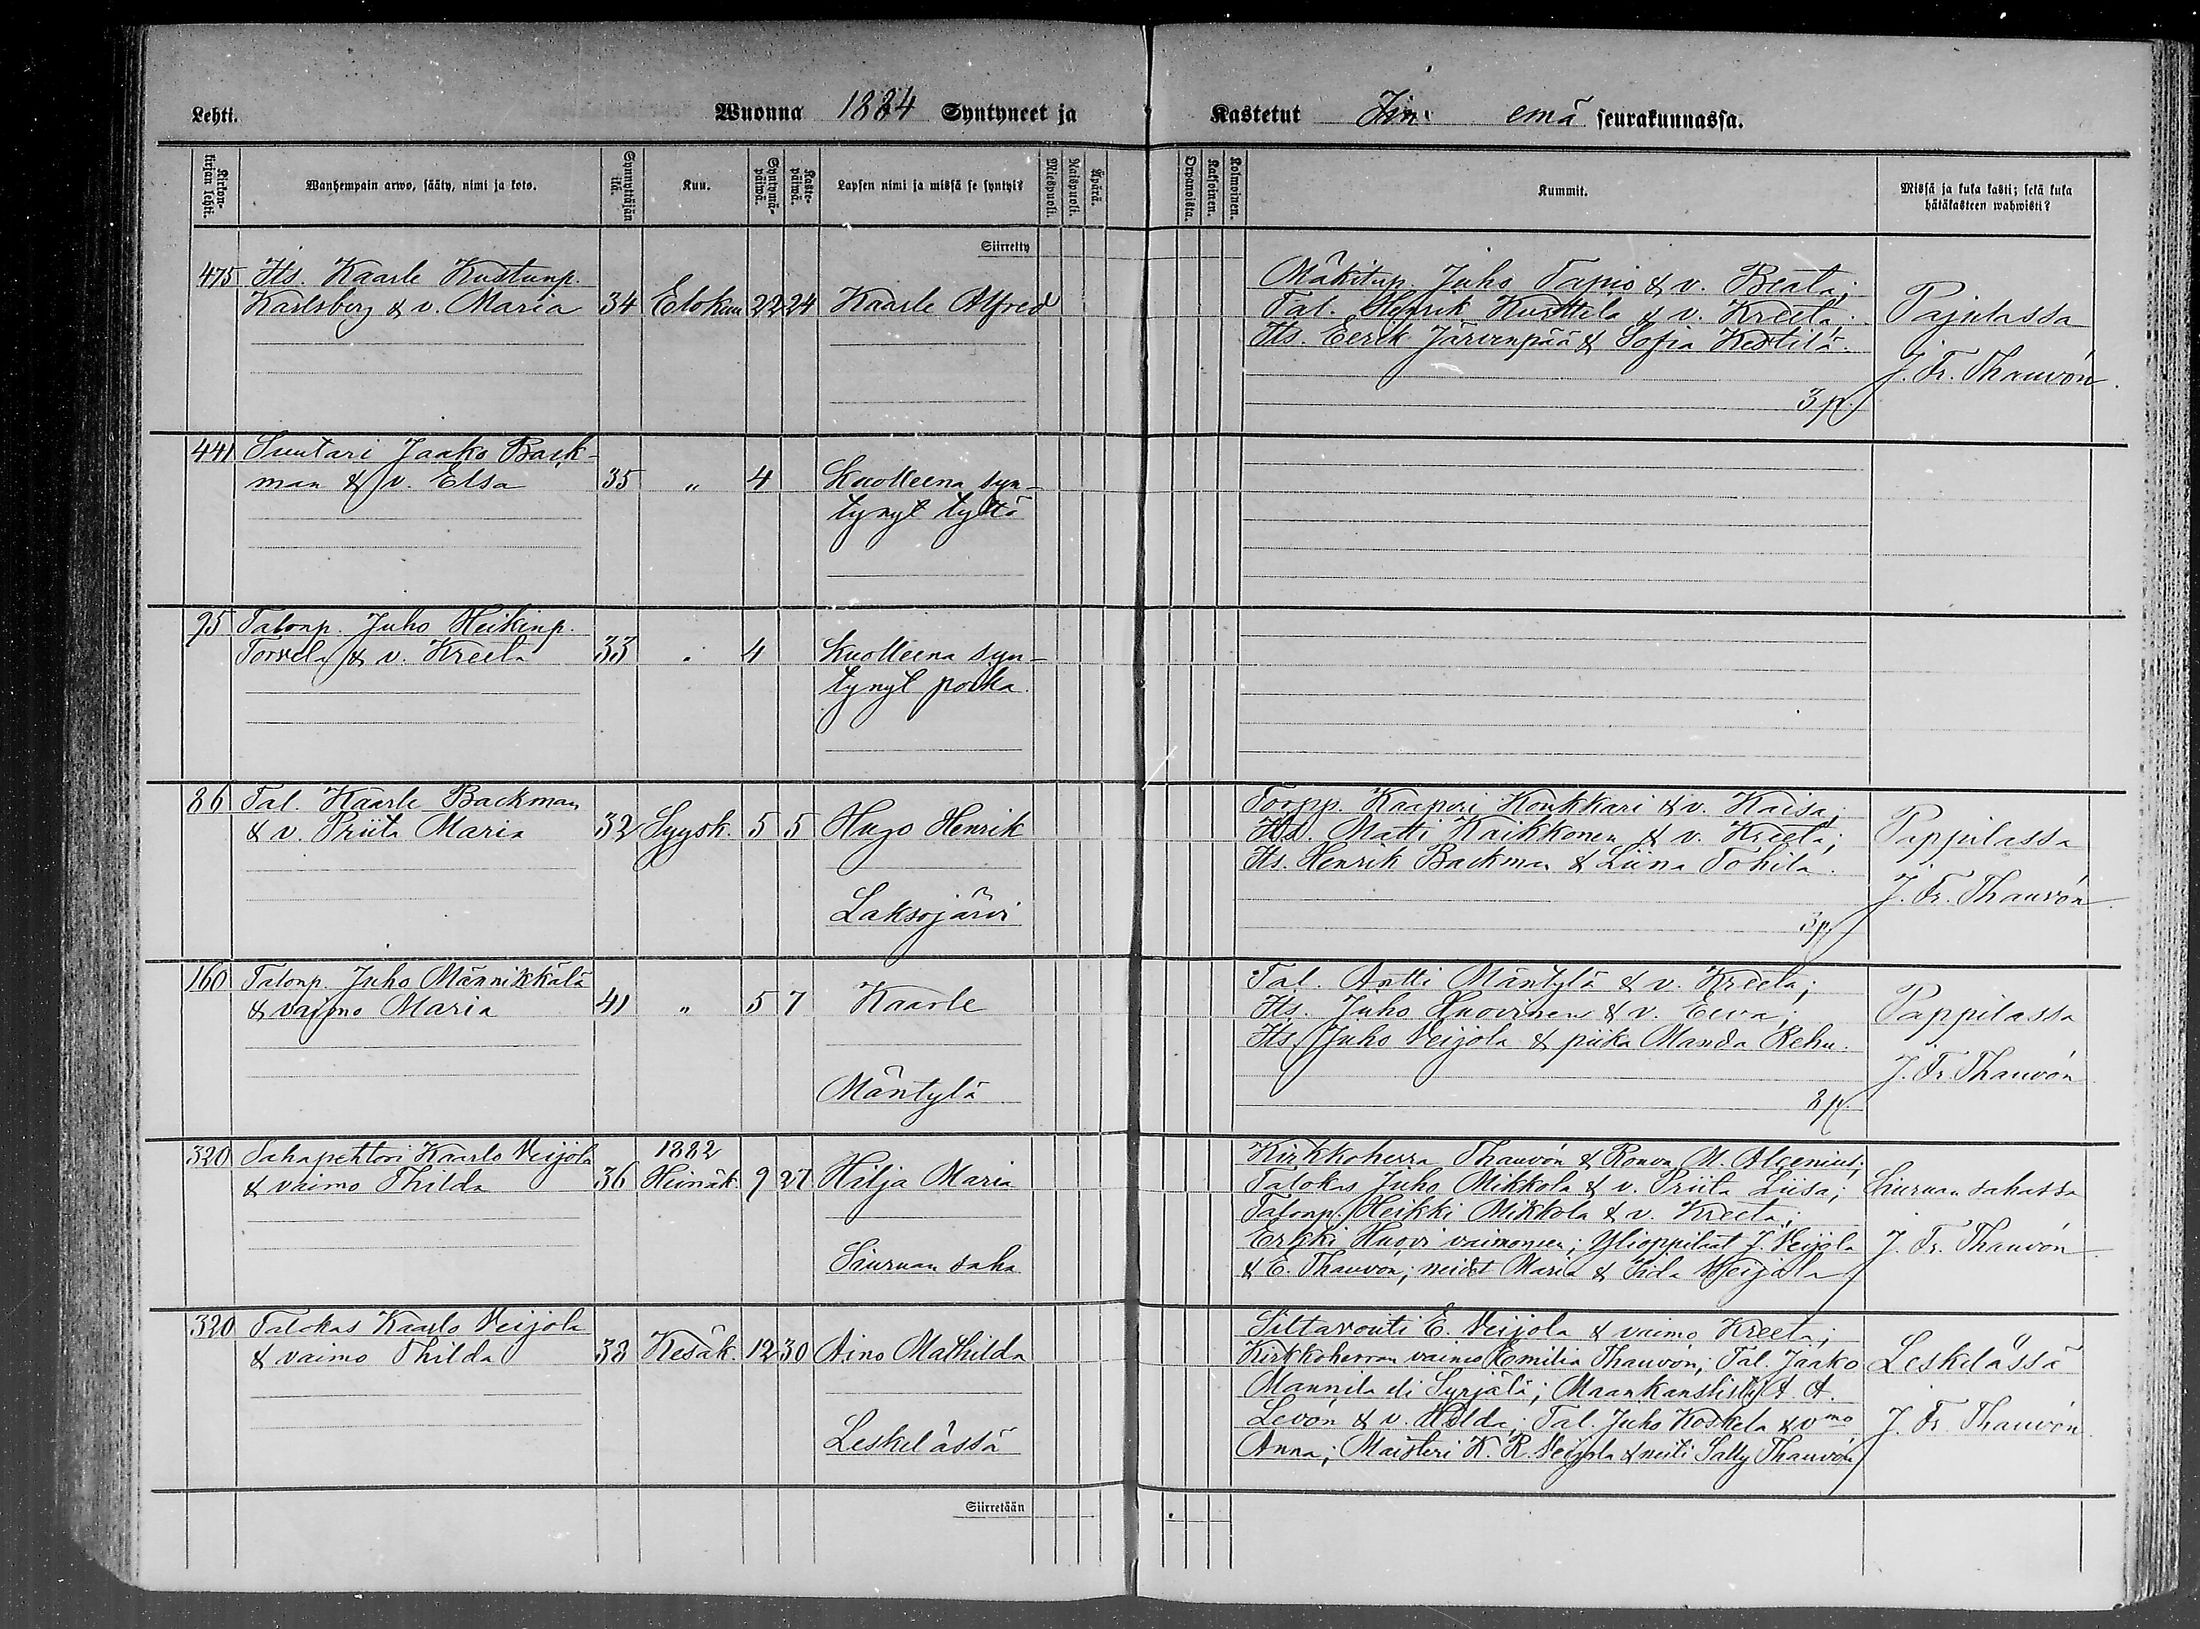 Lehti. Wuonna 1884 Syntyneet ja Kastetut Iin emä seurakunnassa.
Kirkonkirjan lehti. Wanhempain arwo, sääty, nimi ja koto. Synnyttäjän ikä. Kuu. Syntymäpäiwä. Kastepäiwä. Lapsen nimi ja missä se syntyi? Miespuoli. Naispuoli. Äpärä. Orpanoista. Kaksoinen. Kolmoinen. Kummit. Missä ja kuka kasti; sekä kuka hätäkasteen wahwisti?
Siirretty
475 Its. Kaarle Kustunp.
Karlsberg & v. Maria 34 Elokuu 22 24 Kaarle Alfred
Mäkitup. Juho Tapio & v. Beata;
Tal. Henrik Kurttila & v. Kreeta;
Its. Eerik Järvenpää & Sofia Kestilä.
3 p.
Pappilassa
J. Fr. Thauvón.
441 Suutari Jaako Back-
man & v. Elsa 35 " 4 Kuolleena syn-
tynyt tyttö
95 Talonp. Juho Heikinp.
Torvela & v. Kreeta 33 " 4 Kuolleena syn-
tynyt poika.
86 Tal. Kaarle Backman
& v. Priita Maria 32 Syysk. 5 5 Hugo Henrik
Laksojärvi
Torpp. Kaapri Konkkari & v. Kaisa;
Its. Matti Kaikkonen & v. Kreeta;
Its. Henrik Backman & Liina Tohila.
3 p.
Pappilassa
J. Fr. Thauvón.
160 Talonp. Juho Männikkälä
& vaimo Maria 41 " 5 7 Kaarle
Mäntylä
Tal. Antti Mäntylä & v. Kreeta;
Its. Juho Huovinen & v. Eeva;
Its. Juho Veijola & piika Manda Rehu.
3 p.
Pappilassa
J. Fr. Thauvón
320 Sahapehtori Kaarlo Veijola
& vaimo Thilda 36 1882 Heinäk. 9 27 Hilja Maria
Siuruan saha
Kirkkoherra Thauvón & Rouva M. Alcenius;
Talokas Juho Mikkola & v. Priita Liisa;
Talonp. Heikki Mikkola & v. Kreeta;
Erkki Huovi vaimoneen; Ylioppilaat J. Veijola
& E. Thauvón; neidet Maria & Iida Veijola
Siuruan sahassa
J. Fr. Thauvón.
320 Talokas Kaarlo Veijola
& vaimo Thilda 38 Kesäk. 12 30 Aino Mathilda
Leskelässä
Siltavouti E. Veijola & vaimo Kreeta;
Kirkkoherran vaimo Emilia Thauvón; Tal. Jaako
Mannila eli Syrjälä; Maankanslisti A. A.
Levón & v. Hilda; Tal. Juho Koskela & vmo
Anna; Maisteri K. R. Veijola & neiti Sally Thauvón
Leskelässä
J. Fr. Thauvón.
Siirretään